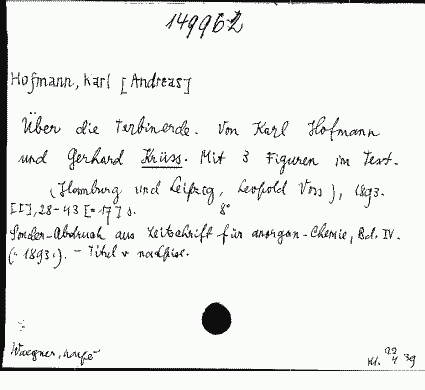 149962
Hofmann, Karl [Andreas]
Über die Terbinerde. Von Karl Hofmann
und Gerhard Krüss. Mit 3 Figuren im Text.
(Hamburg und Leipzig, Leopold Voss), 1893.
[I], 28-43 [=17] S. 8°
Sonder-Abdruck aus Zeitschrift für anorgan. Chemie, Bd. IV.
(. 1893.). - Titel v
Wuegner,
22
4 39